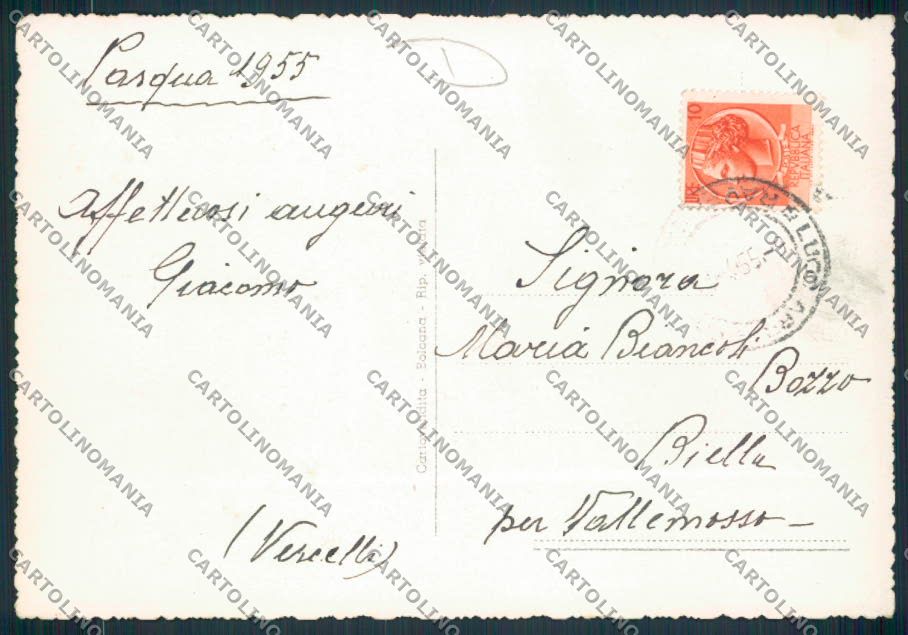 Pasqua 1955
Affettuosi auguri
Giacomo
(Vercelli)
Cartolandita - Bologna - Rip. vietata
10
LIRE
POSTE
REPUBBLICA
ITALIANA
LUGO
55
Signora
Maria Biancoli
Bozzo
Biella
per Vallemosso
CARTOLINOMANIA